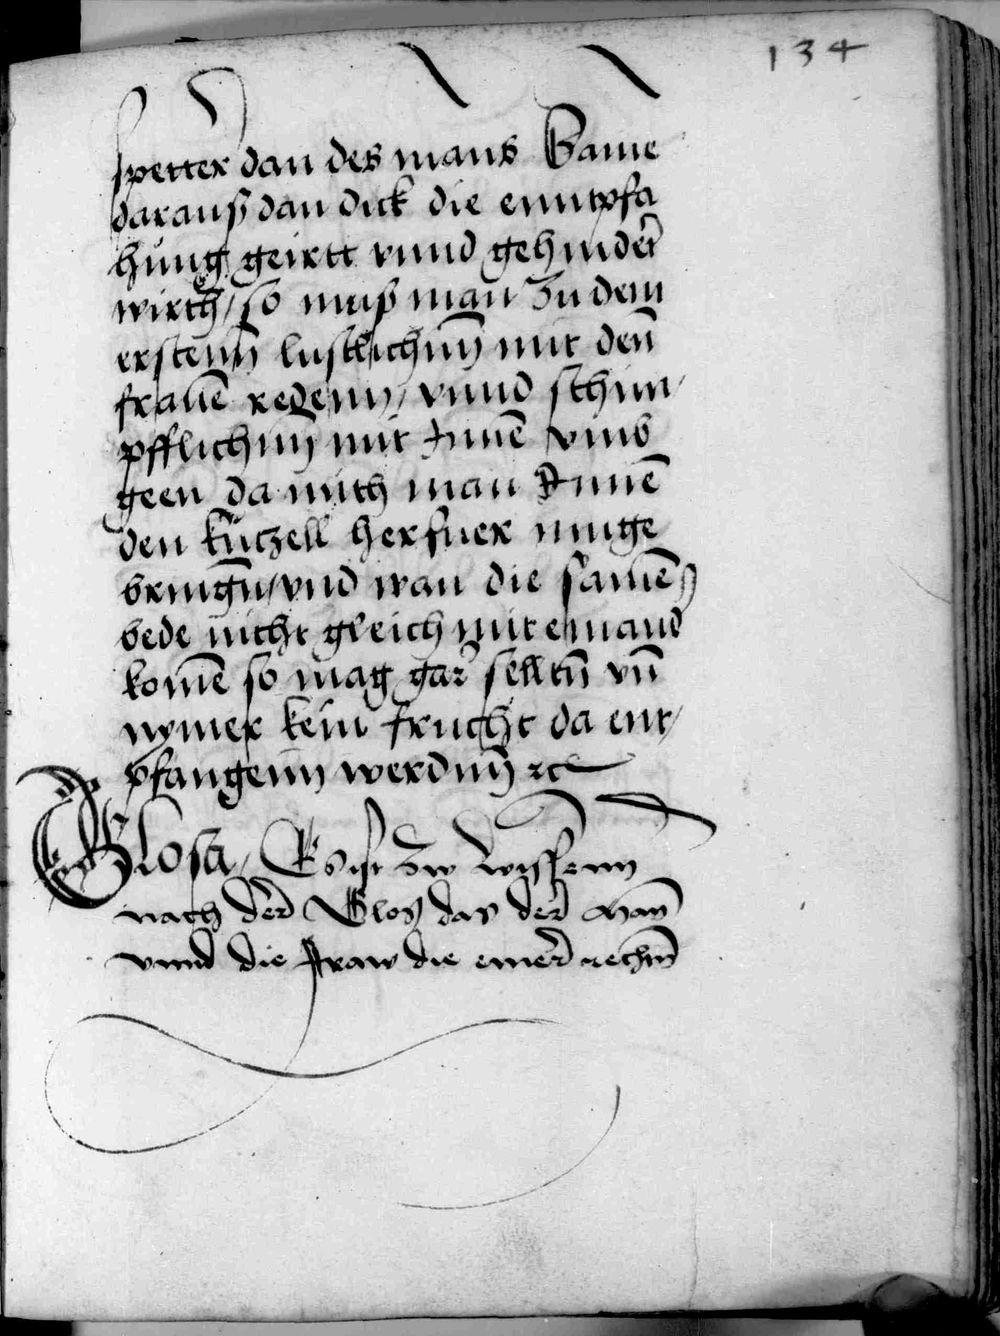 134
spetter dan des mans Same
darauß dan dick die enntpfa
hung geirtt vnnd gehindert
wirth / so muß man zu dem
erstenn lustlichnn mit denn
frauē redenn / vnnd schim /
pfflichnn mit Innē vmb
geen da mith man Innē
den kützell herfuer muge
bringn̄ / vnd wan die samē
bede nicht gleich mit einand
komē so mag gar selltn̄ vn̄
nymer kein frucht da ent /
pfangenn werdnn̄ ꝛc
Glosa / Es ist zw wissenn
nach der Glos das der man
vnnd die fraw die einer rechnn̄